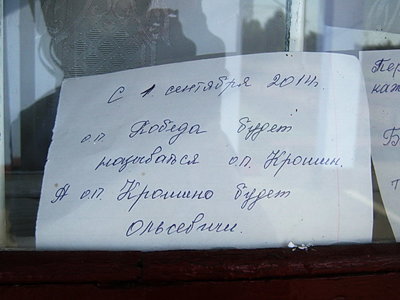 С 1 сентября 2014г.
о.п. Победа будет
называться о.п. Крошин.
А о.п. Крошино будет
Ольсевичи.
Пер
Б